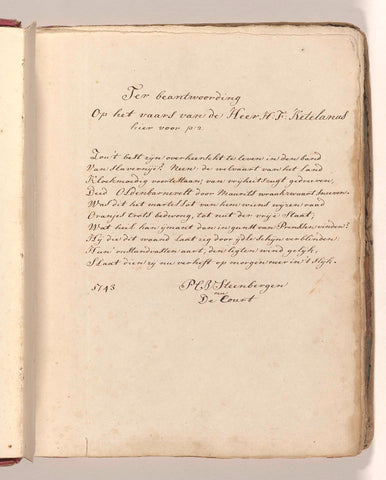 Ter beantwoording
Op het vaars van de Heer H. F. Ketelanus
hier voor p 2
Zou't belt zyn overheerscht te leven in den band
Van Slavernije? Neen: de welvaart van het Land
Kloekmoedig voortestaan, van vryheits zugt gedreven,
Deed Oldenbarnevelt door Maurits wraakzwaart sneven.
Was dit het martel lot van hem wiens wyzen raad
Oranjes trots bedwong, tot nut der vrije Staat;
Wat heil kan ymant dan in gunst van Prinssen vinden?
Hy die dit waand laat zig door ijdle schijn verblinden
Hun onstandvasten aart, den ligten wind gelyk,
Slaat dien zij nu verheft op morgen neer in 't slyk.
1743 P C J Steenbergen
De Court